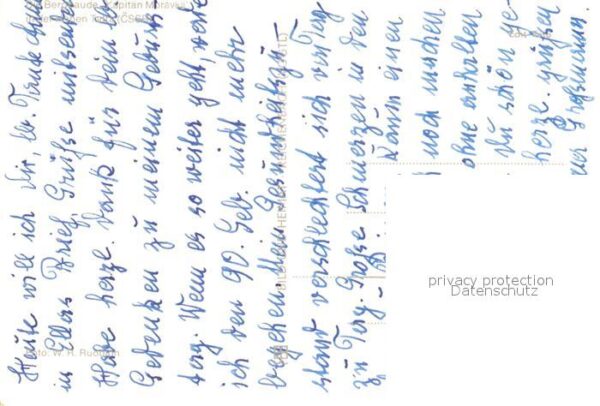 Heute will ich Dir, lb. Trude
in Ellas Brief, Grüße mitsenden
Habe herzl. Dank für dein
Gedenken zu meinem Geburts
tag. Wenn es so weiter geht,
ich den 90. Geb. nicht mehr
begehen. Mein Gesundheitszu-
stand verschlechtert sich von Tag
zu Tag. Große Schmerzen in den
Kann einen
noch machen
ohne anhalten
Du schön
herzl. grüßen
Die Bergbaude
Foto: W. R.
privacy protection
Datenschutz